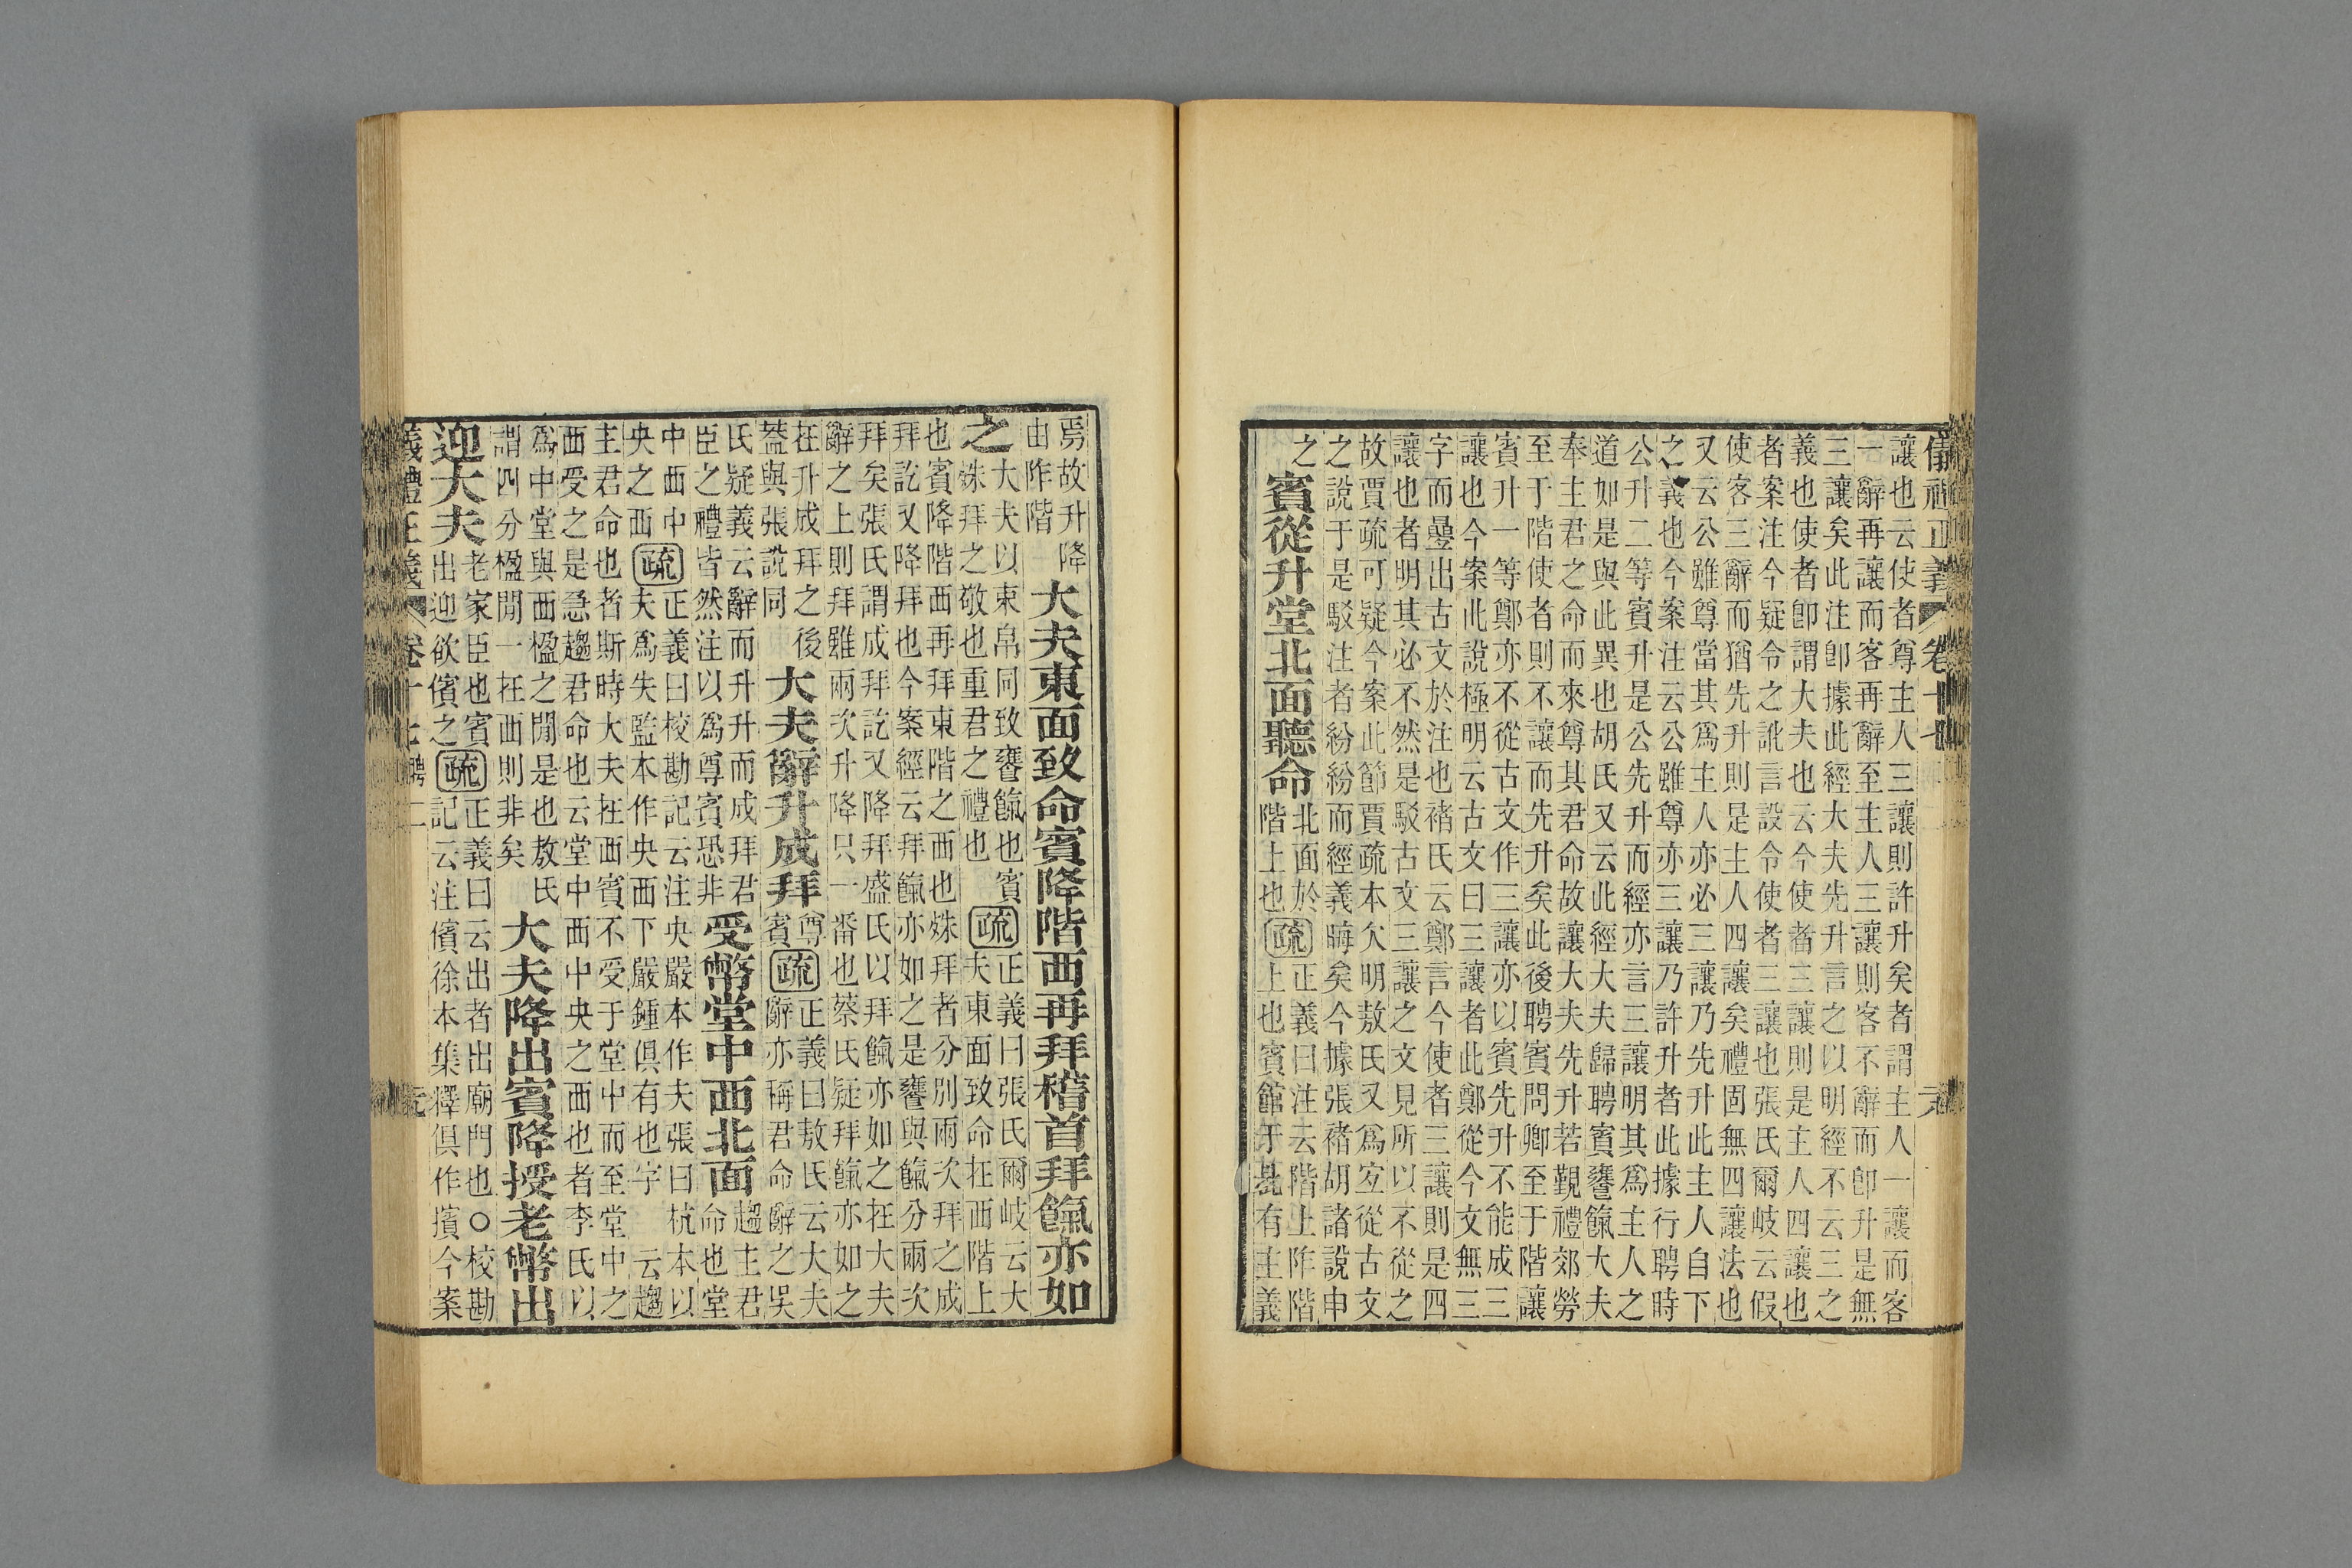 儀禮正義 卷十七
讓也云使者尊主人三讓則許升矣者謂主人一讓而客
一辭再讓而客再辭至主人三讓則客不辭而卽升是無
三讓矣此注卽據此經大夫先升言之以明經不云三之
義也使者卽謂大夫也云今使者三讓則是主人四讓也
者案注今疑令之訛言設令使者三讓也張氏爾岐云假
使客三辭而猶先升則是主人四讓矣禮固無四讓法也
又云公雖尊當其爲主人亦必三讓乃先升此主人自下
之義也今案注云公雖尊亦三讓乃許升者此據行聘時
公升二等賓升是公先升而經亦言三讓明其爲主人之
道如是與此異也胡氏又云此經大夫歸聘賓饔餼大夫
奉主君之命而來尊其君命故讓大夫先升若覲禮郊勞
至于階使者則不讓而先升矣此後聘賓問卿至于階讓
賓升一等鄭亦不從古文作三讓亦以賓先升不能成三
讓也今案此說極明云古文曰三讓者此鄭從今文無三
字而疊出古文於注也褚氏云鄭言今使者三讓則是四
讓也者明其必不然是駁古文三讓之文見所以不從之
故賈疏可疑今案此節賈疏本欠明敖氏又爲宜從古文
之說于是駁注者紛紛而經義晦矣今據張褚胡諸說申
之
賓從升堂北面聽命
北面於
階上也
疏
正義曰注云階上阼階
上也賓館于是有主義
焉故升降
由阼階
大夫東面致命賓降階西再拜稽首拜餼亦如
之
大夫以束帛同致饔餼也賓
殊拜之敬也重君之禮也
疏
正義曰張氏爾岐云大
夫東面致命在西階上
也賓降階西再拜東階之西也殊拜者分別兩次拜之成
拜訖又降拜也今案經云拜餼亦如之是饔與餼分兩次
拜矣張氏謂成拜訖又降拜盛氏以拜餼亦如之在大夫
辭之上則拜雖兩次升降只一番也蔡氏疑拜餼亦如之
在升成拜之後
葢與張說同
大夫辭升成拜
尊
賓
疏
正義曰敖氏云大夫
辭亦稱君命辭之吳
氏疑義云辭而升升而成拜君
臣之禮皆然注以爲尊賓恐非
受幣堂中西北面
趨主君
命也堂
中西中
央之西
疏
正義曰校勘記云注央嚴本作夫張曰杭本以
夫爲失監本作央西下嚴鍾俱有也字 云趨
主君命也者斯時大夫在西賓不受于堂中而至堂中之
西受之是急趨君命也云堂中西中央之西也者李氏以
爲中堂與西楹之閒是也敖氏
謂四分楹閒一在西則非矣
大夫降出賓降授老幣出
迎大夫
老家臣也賓
出迎欲儐之
疏
正義曰云出者出廟門也○校勘
記云注儐徐本集釋俱作擯今案
義禮正義 卷十七聘二